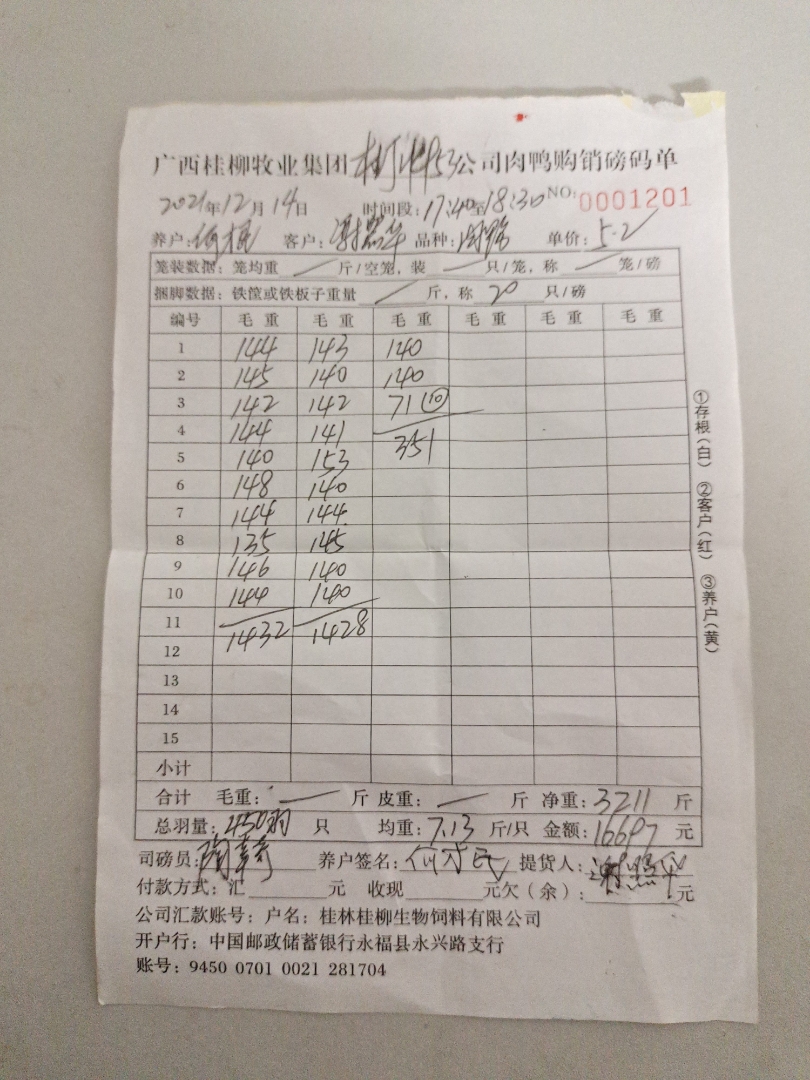 广西桂柳牧业集团 公司肉鸭购销磅码单
2021年12月14日 时间段:17:40至18:30 NO: 0001201
养户: 客户:谢照华 品种: 单价:5.2
笼装数据:笼均重 / 斤/空笼,装 / 只/笼,称 / 笼/磅
捆脚数据:铁筐或铁板子重量 / 斤,称 20 只/磅
编号 毛重 毛重 毛重 毛重 毛重 毛重
1 144 143 140
2 145 140 140
3 142 142 71 (10)
4 144 141 351
5 140 153
6 148 140
7 144 144
8 135 145
9 146 140
10 144 140
11 1432 1428
12
13
14
15
小计
合计 毛重: 斤 皮重: 斤 净重:3211 斤
总羽量:450羽 只 均重:7.13 斤/只 金额:16697 元
司磅员: 养户签名: 提货人:谢照华
付款方式:汇 元 收现 元欠(余): 元
公司汇款账号:户名:桂林桂柳生物饲料有限公司
开户行:中国邮政储蓄银行永福县永兴路支行
账号:9450 0701 0021 281704
①存根(白) ②客户(红) ③养户(黄)